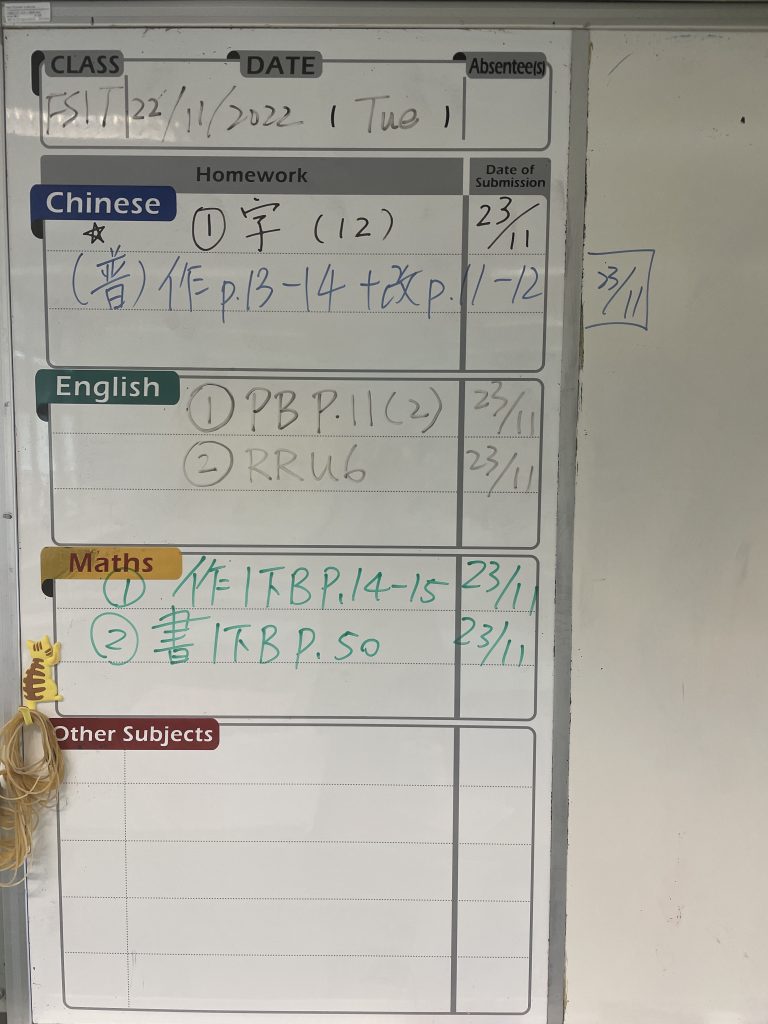 CLASS DATE Absentee(s)
FSIT 22/11/2022 ( Tue )
Homework Date of Submission
Chinese
☆ ① 字 (12) 23/11
(普) 作 p.13-14 + 改 p.11-12 23/11
English
① PB P.11(2) 23/11
② RRU6 23/11
Maths
① 作1下B P.14-15 23/11
② 書1下B P.50 23/11
Other Subjects